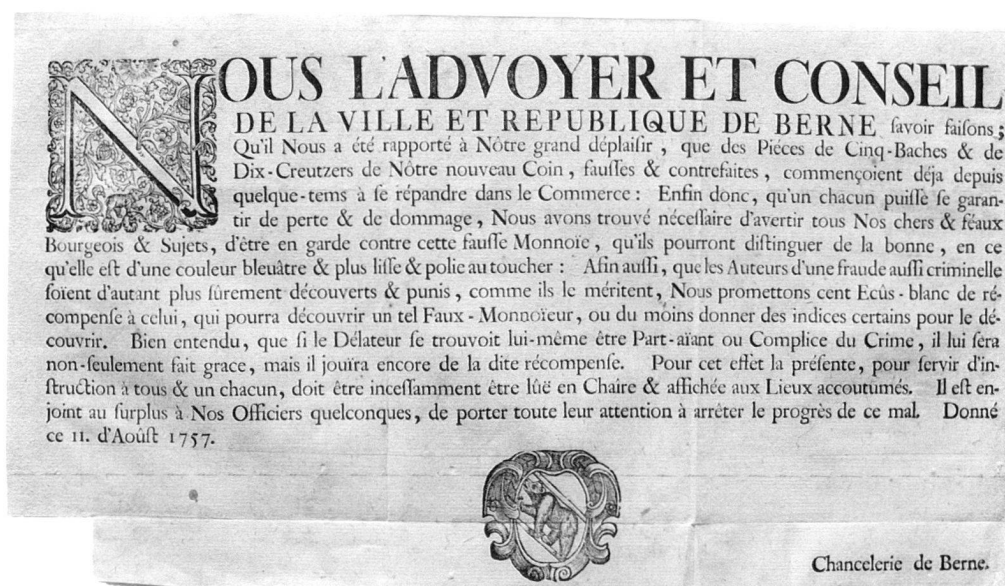 NOUS L'ADVOYER ET CONSEIL
DE LA VILLE ET REPUBLIQUE DE BERNE ſavoir faiſons;
Qu'il Nous a été rapporté à Nôtre grand déplaiſir, que des Piéces de Cinq-Baches & de
Dix-Creutzers de Nôtre nouveau Coin, fauſſes & contrefaites, commençoient déja depuis
quelque-tems à ſe répandre dans le Commerce: Enfin donc, qu'un chacun puiſſe ſe garan-
tir de perte & de dommage, Nous avons trouvé néceſſaire d'avertir tous Nos chers & féaux
Bourgeois & Sujets, d'être en garde contre cette fauſſe Monnoïe, qu'ils pourront diſtinguer de la bonne, en ce
qu'elle eſt d'une couleur bleuâtre & plus liſſe & polie au toucher: Afin auſſi, que les Auteurs d'une fraude auſſi criminelle
ſoient d'autant plus ſûrement découverts & punis, comme ils le méritent, Nous promettons cent Ecûs-blanc de ré-
compenſe à celui, qui pourra découvrir un tel Faux-Monnoïeur, ou du moins donner des indices certains pour le dé-
couvrir. Bien entendu, que ſi le Délateur ſe trouvoit lui-même être Part-aïant ou Complice du Crime, il lui ſera
non-ſeulement fait grace, mais il jouïra encore de la dite récompenſe. Pour cet effèt la préſente, pour ſervir d'in-
ſtruction à tous & un chacun, doit être inceſſamment être lûë en Chaire & affichée aux Lieux accoutumés. Il eſt en-
joint au ſurplus à Nos Officiers quelconques, de porter toute leur attention à arrêter le progrès de ce mal. Donné
ce 11. d'Aoûſt 1757.
Chancelerie de Berne.